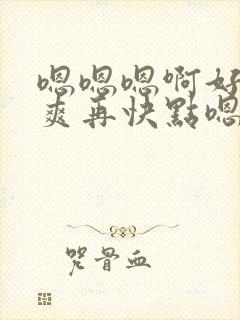 嗯嗯嗯啊好
爽再快點嗯
咒骨血